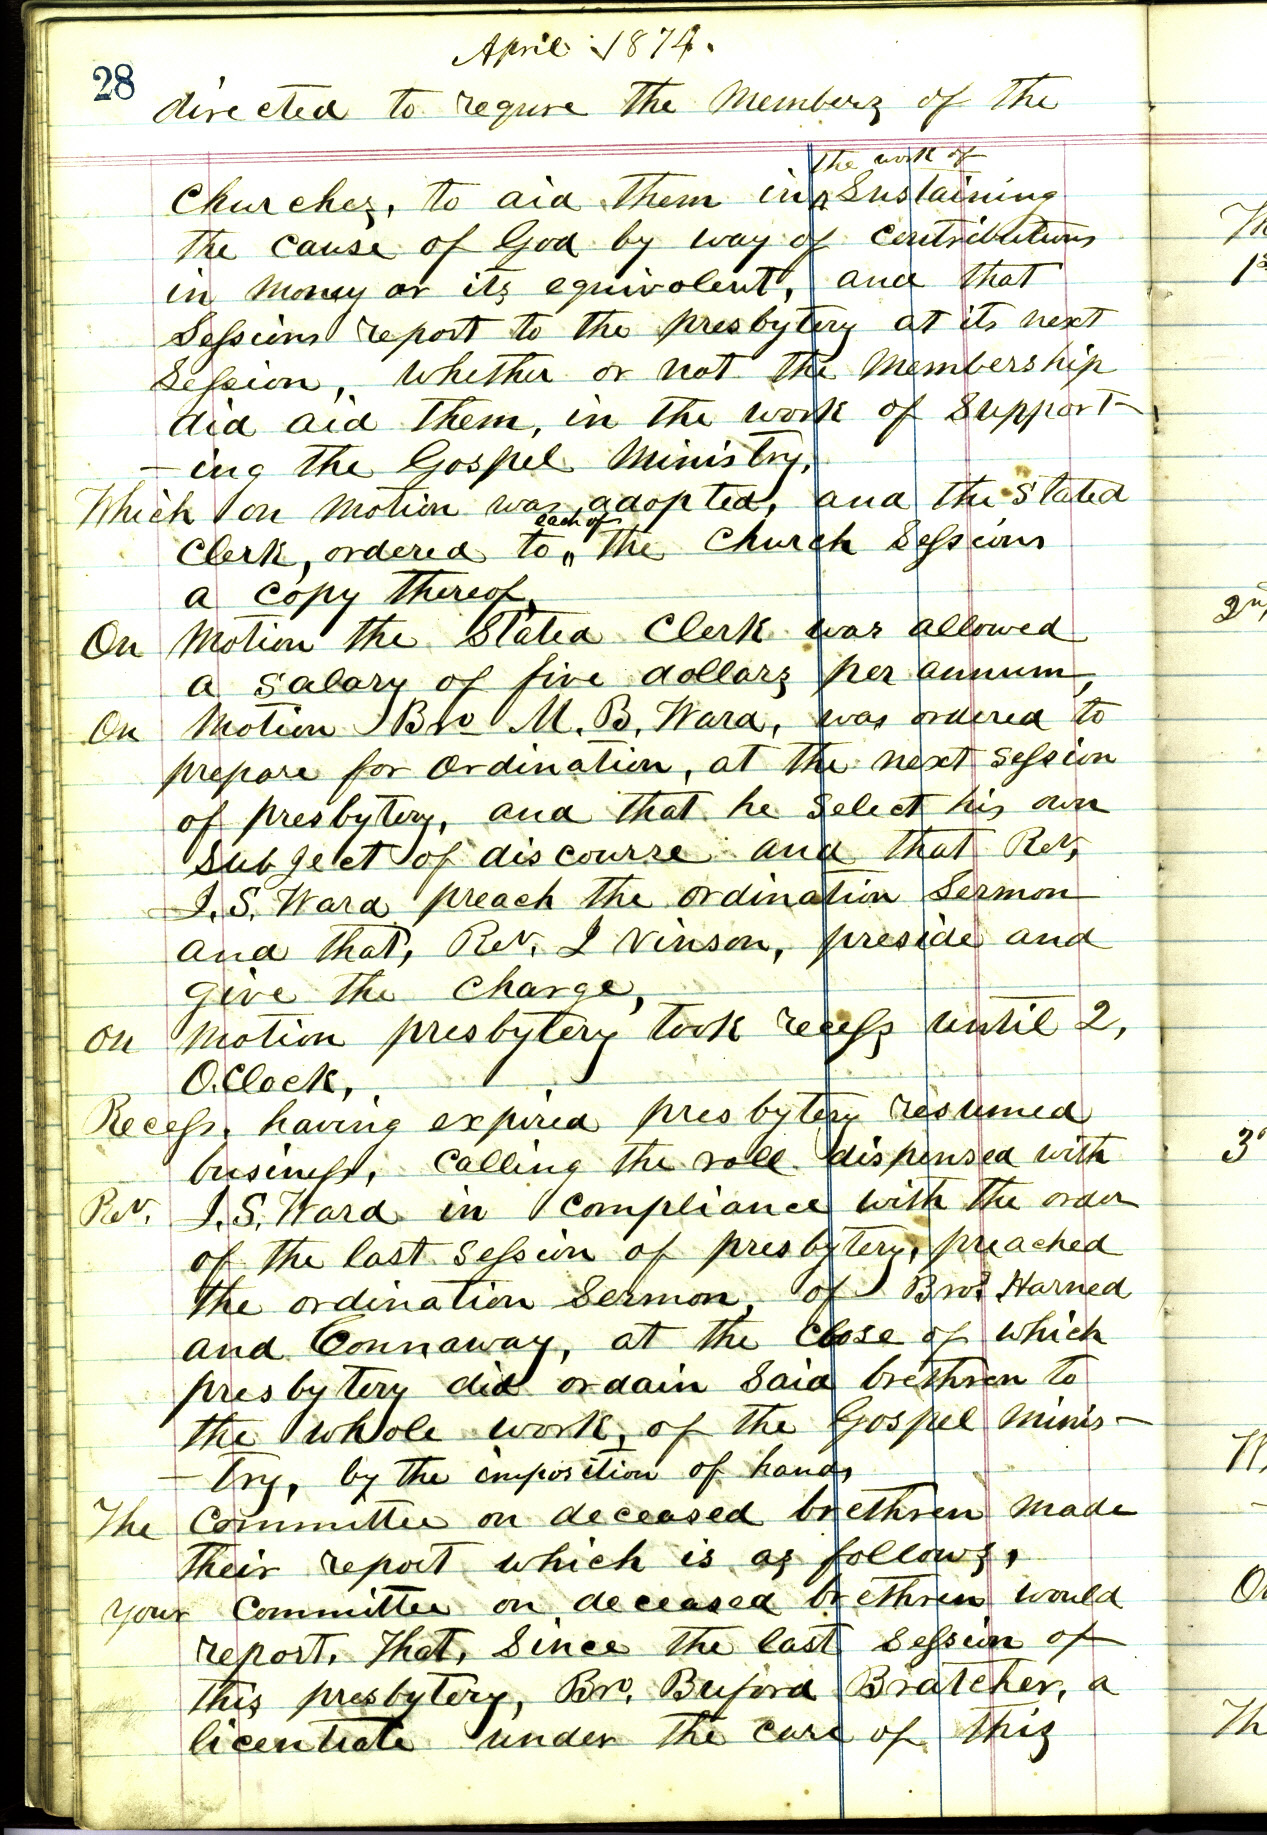 April 1874.
28
directed to requre the Members of the
the work of
Churches, to aid them in Sustaining
the cause of God by way of contributions
in money or its equivolent, and that
Sessions report to the presbytery at its next
Session, whether or not the membership
did aid them, in the work of Support-
-ing the Gospel Ministry,
Which on motion was adopted, and the Stated
each of
Clerk, ordered to the Church Sessions
a copy thereof,
On Motion the Stated Clerk was allowed
a salary of five dollars per annum,
On Motion Bro M. B. Ward, was ordered to
prepare for ordination, at the next session
of presbytery, and that he select his own
subject of discourse and that Rev,
J. S. Ward preach the ordination Sermon
and that, Rev. J Vinson, preside and
give the charge,
On Motion presbytery took recess until 2,
O.Clock,
Recess, having expired presbytery resumed
business, calling the roll dispensed with
Rev. J. S. Ward in compliance with the order
of the last session of presbytery, preached
the ordination Sermon, of Bros Harned
and Connaway, at the close of which
presbytery did ordain said brethren to
the whole work, of the Gospel Minis-
-try, by the imposition of hands
The Committee on deceased brethren made
their report which is as follows,
Your Committee on deceased brethren would
report, That, Since the last session of
this presbytery, Bro, Buford Bratcher, a
licentiate under the care of this
Th
2nd
3
Th